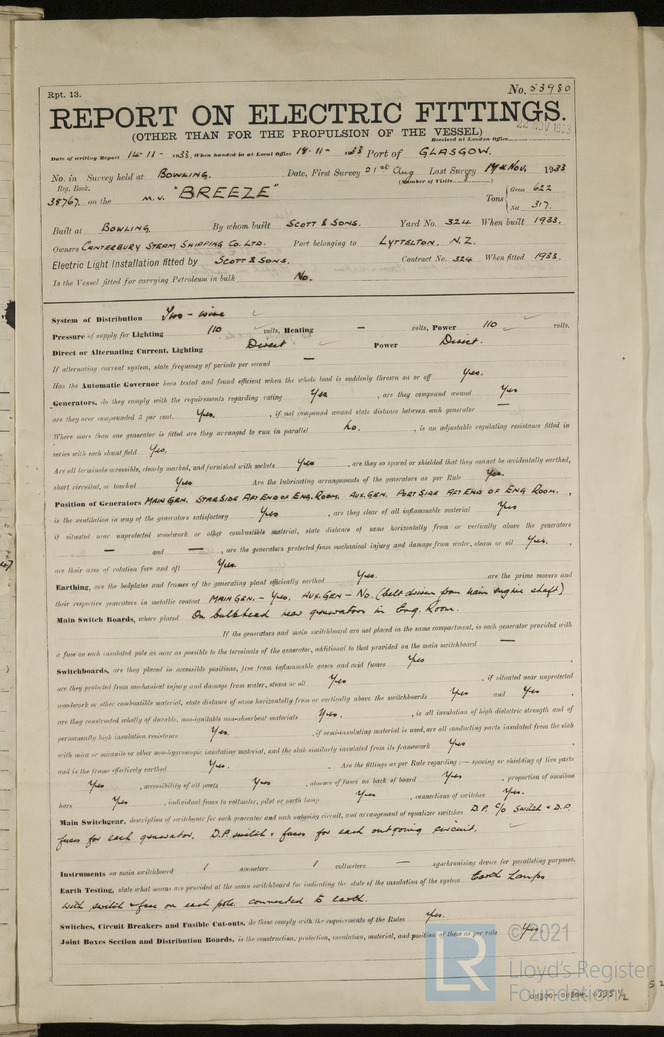 Rpt. 13.
No. 53980
REPORT ON ELECTRIC FITTINGS.
(OTHER THAN FOR THE PROPULSION OF THE VESSEL)
Received at London Office 22 NOV 1933
Date of writing Report 14-11-1933. When handed in at Local Office 18.11.1933 Port of GLASGOW.
No. in Survey held at BOWLING. Date, First Survey 21st Aug Last Survey 17th Nov. 1933
Reg. Book. (Number of Visits)
38767. on the M.V. "BREEZE" Tons { Gross 622
Net 317.
Built at BOWLING By whom built SCOTT & SONS. Yard No. 324 When built 1933.
Owners CANTERBURY STEAM SHIPPING CO. LTD. Port belonging to LYTTELTON. N.Z.
Electric Light Installation fitted by SCOTT & SONS. Contract No. 324 When fitted 1933.
Is the Vessel fitted for carrying Petroleum in bulk No.
System of Distribution Two-wire
Pressure of supply for Lighting 110 volts, Heating — volts, Power 110 volts.
Direct or Alternating Current, Lighting Direct Power Direct.
If alternating current system, state frequency of periods per second —
Has the Automatic Governor been tested and found efficient when the whole load is suddenly thrown on or off Yes.
Generators, do they comply with the requirements regarding rating Yes, are they compound wound Yes
are they over compounded 5 per cent. Yes., if not compound wound state distance between each generator —
Where more than one generator is fitted are they arranged to run in parallel No., is an adjustable regulating resistance fitted in
series with each shunt field Yes.
Are all terminals accessible, clearly marked, and furnished with sockets Yes, are they so spaced or shielded that they cannot be accidentally earthed,
short circuited, or touched Yes Are the lubricating arrangements of the generators as per Rule Yes.
Position of Generators MAIN GEN. STARSIDE AFT END OF ENG. ROOM. AUX. GEN. PORT SIDE AFT END OF ENG ROOM.,
is the ventilation in way of the generators satisfactory Yes, are they clear of all inflammable material Yes
if situated near unprotected woodwork or other combustible material, state distance of same horizontally from or vertically above the generators
— and —, are the generators protected from mechanical injury and damage from water, steam or oil Yes.,
are their axes of rotation fore and aft Yes.
Earthing, are the bedplates and frames of the generating plant efficiently earthed Yes. are the prime movers and
their respective generators in metallic contact MAIN GEN. - Yes. AUX. GEN - No. (belt driven from main engine shaft)
Main Switch Boards, where placed On bulkhead near generators in Eng. Room.
If the generators and main switchboard are not placed in the same compartment, is each generator provided with
a fuse on each insulated pole as near as possible to the terminals of the generator, additional to that provided on the main switchboard —
Switchboards, are they placed in accessible positions, free from inflammable gases and acid fumes Yes,
are they protected from mechanical injury and damage from water, steam or oil Yes, if situated near unprotected
woodwork or other combustible material, state distance of same horizontally from or vertically above the switchboards Yes and Yes,
are they constructed wholly of durable, non-ignitable non-absorbent materials Yes., is all insulation of high dielectric strength and of
permanently high insulation resistance Yes., if semi-insulating material is used, are all conducting parts insulated from the slab
with mica or micanite or other non-hygroscopic insulating material, and the slab similarly insulated from its framework Yes,
and is the frame effectively earthed Yes. Are the fittings as per Rule regarding:— spacing or shielding of live parts
Yes, accessibility of all parts Yes, absence of fuses on back of board Yes, proportion of omnibus
bars Yes, individual fuses to voltmeter, pilot or earth lamp Yes, connections of switches Yes.
Main Switchgear, description of switchgear for each generator and each outgoing circuit, and arrangement of equalizer switches D.P. C/O Switch & D.P.
fuses for each generator. D.P. switch & fuses for each outgoing circuit.
Instruments on main switchboard 1 ammeters 1 voltmeters — synchronising device for paralleling purposes.
Earth Testing, state what means are provided at the main switchboard for indicating the state of the insulation of the system Earth Lamps
with switch & fuse on each pole connected to earth.
Switches, Circuit Breakers and Fusible Cut-outs, do these comply with the requirements of the Rules Yes.
Joint Boxes Section and Distribution Boards, is the construction, protection, insulation, material, and position of these as per rule Yes.
© 2021
LR
Lloyd's Register
Foundation